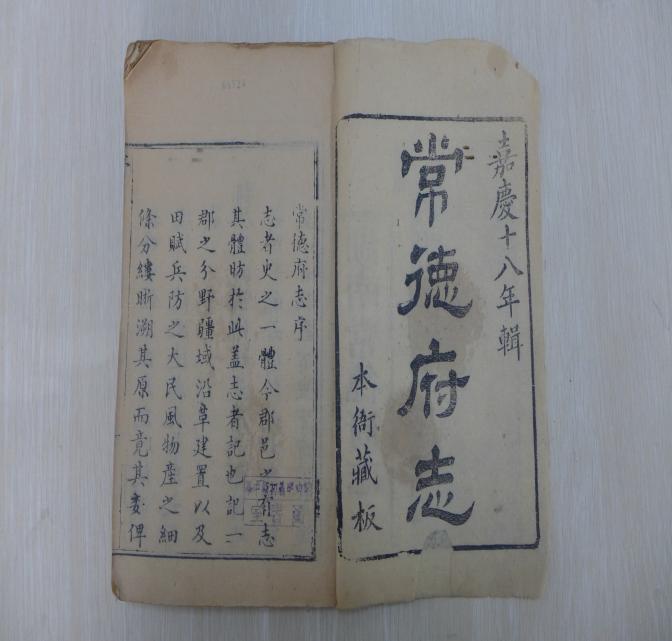 嘉慶十八年輯
常德府志
本衙藏板
常德府志序
志者史之一體今郡邑之有志
其體昉於此蓋志者記也記一
郡之分野疆域沿革建置以及
田賦兵防之大民風物産之細
條分縷晰溯其原而竟其委俾